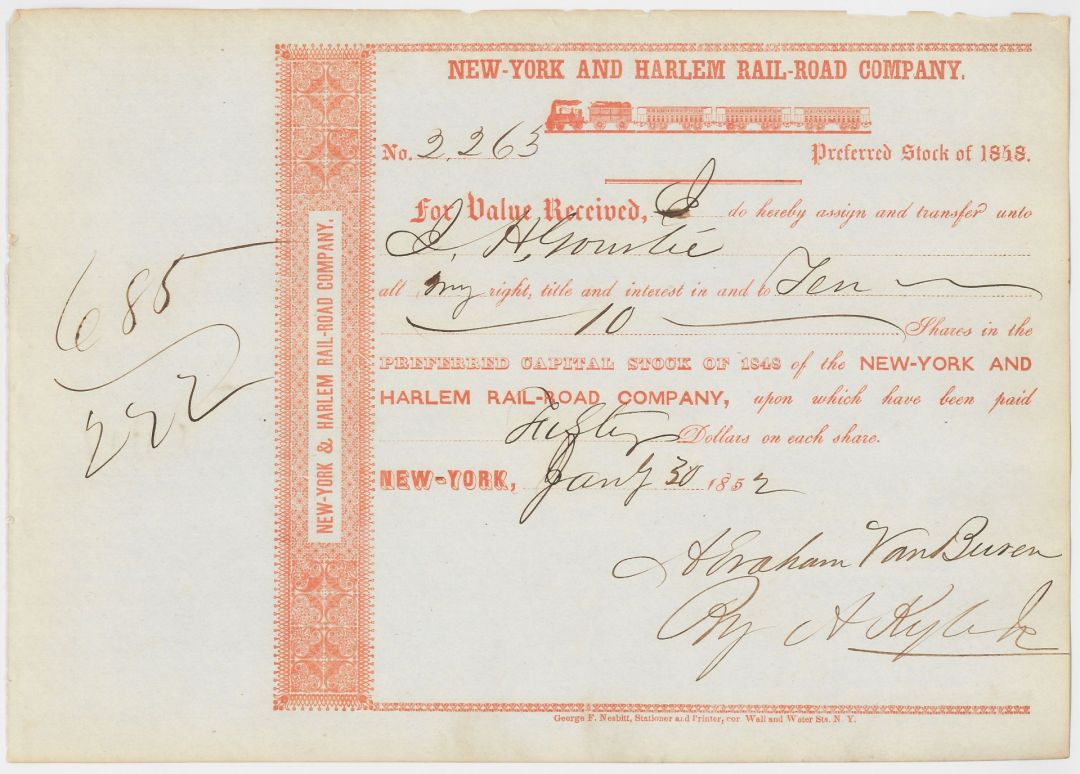 NEW-YORK AND HARLEM RAIL-ROAD COMPANY.
No. 2,263 Preferred Stock of 1848.
For Value Received, I do hereby assign and transfer unto
all my right, title and interest in and to Ten
10 Shares in the
PREFERRED CAPITAL STOCK OF 1848 of the NEW-YORK AND
HARLEM RAIL-ROAD COMPANY, upon which have been paid
Fifty Dollars on each share.
NEW-YORK, Jany 30 1852
Abraham Van Buren
By A Kyle Jr
George F. Nesbitt, Stationer and Printer, cor. Wall and Water Sts. N. Y.
NEW-YORK & HARLEM RAIL-ROAD COMPANY.
685
222